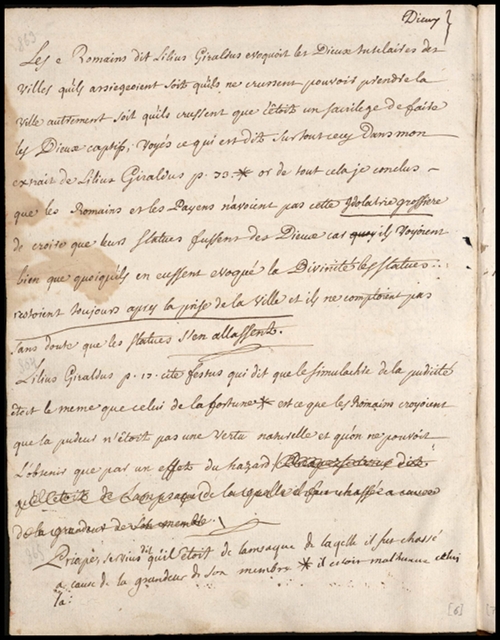 Dieux
Les Romains dit Lilius Giraldus evoquoit les Dieux tutelaires des
Villes qu'ils assiegeoient soit qu'ils ne crussent pouvoir prendre la
Ville autrement soit qu'ils crussent que c'étoit un sacrilege de faire
les Dieux captifs, voyés ce qui est dit sur tout ceci dans mon
extrait de Lilius Giraldus p. 33. * or de tout cela je conclus
que les Romains et les Payens n'avoient pas cette Idolatrie grossiere
de croire que leurs statues fussent des Dieux car ils voyoient
bien que quoiqu'ils en eussent evoqué la Divinité les statues
restoient toujours apres la prise de la Ville et ils ne comptoient pas
sans doute que les statues s'en allassent.
Lilius Giraldus p. 17. cite festus qui dit que le simulachre de la pudicité
étoit le meme que celui de la fortune * est ce que les Romains croyoient
que la pudeur n'étoit pas une vertu naturelle et qu'on ne pouvoit
l'obtenir que par un effet du hazard
de Lampsaque de laquelle il fut chassé a cause
de la grandeur de son membre.
Priape, Servius dit qu'il étoit de lamsaque de laqlle il fut chassé
a cause de la grandeur de son membre * il est oir malheureux celui
la:
[6]